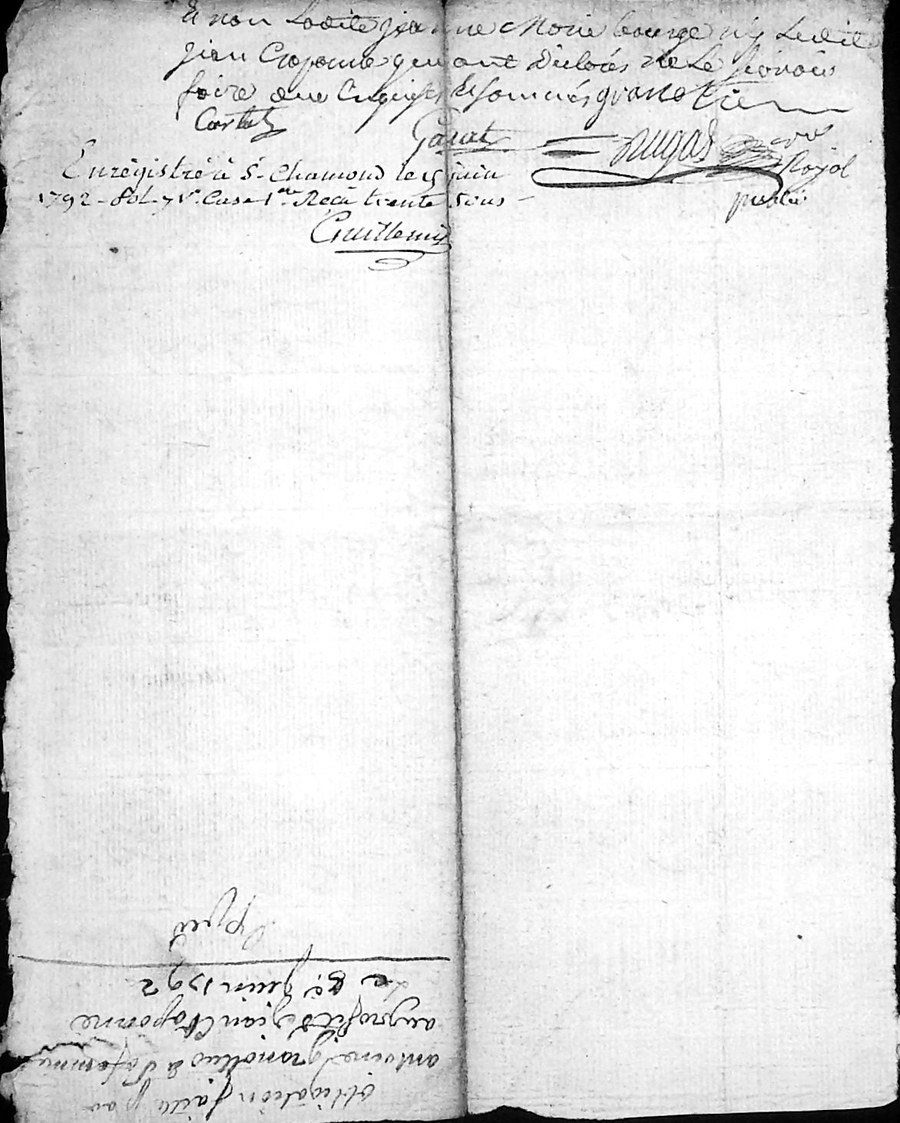 & non Ladite jeanne Marie bourge ny Ledit
jean Chaponne qui ont déclarés ne Le scavoir
faire de ce Enquis & sommés granottier
Cartal
Garat
Dugas
Royal
public
Enregistré à St. Chamond le 15 juin
1792. fol. 7 Vo. Case 1ere Reçu trente sous
Guillemin
obligation faite par
antoine granottier & sa femme
au profit de jean Chaponne
Le 8e. Juin 1792
Expéd